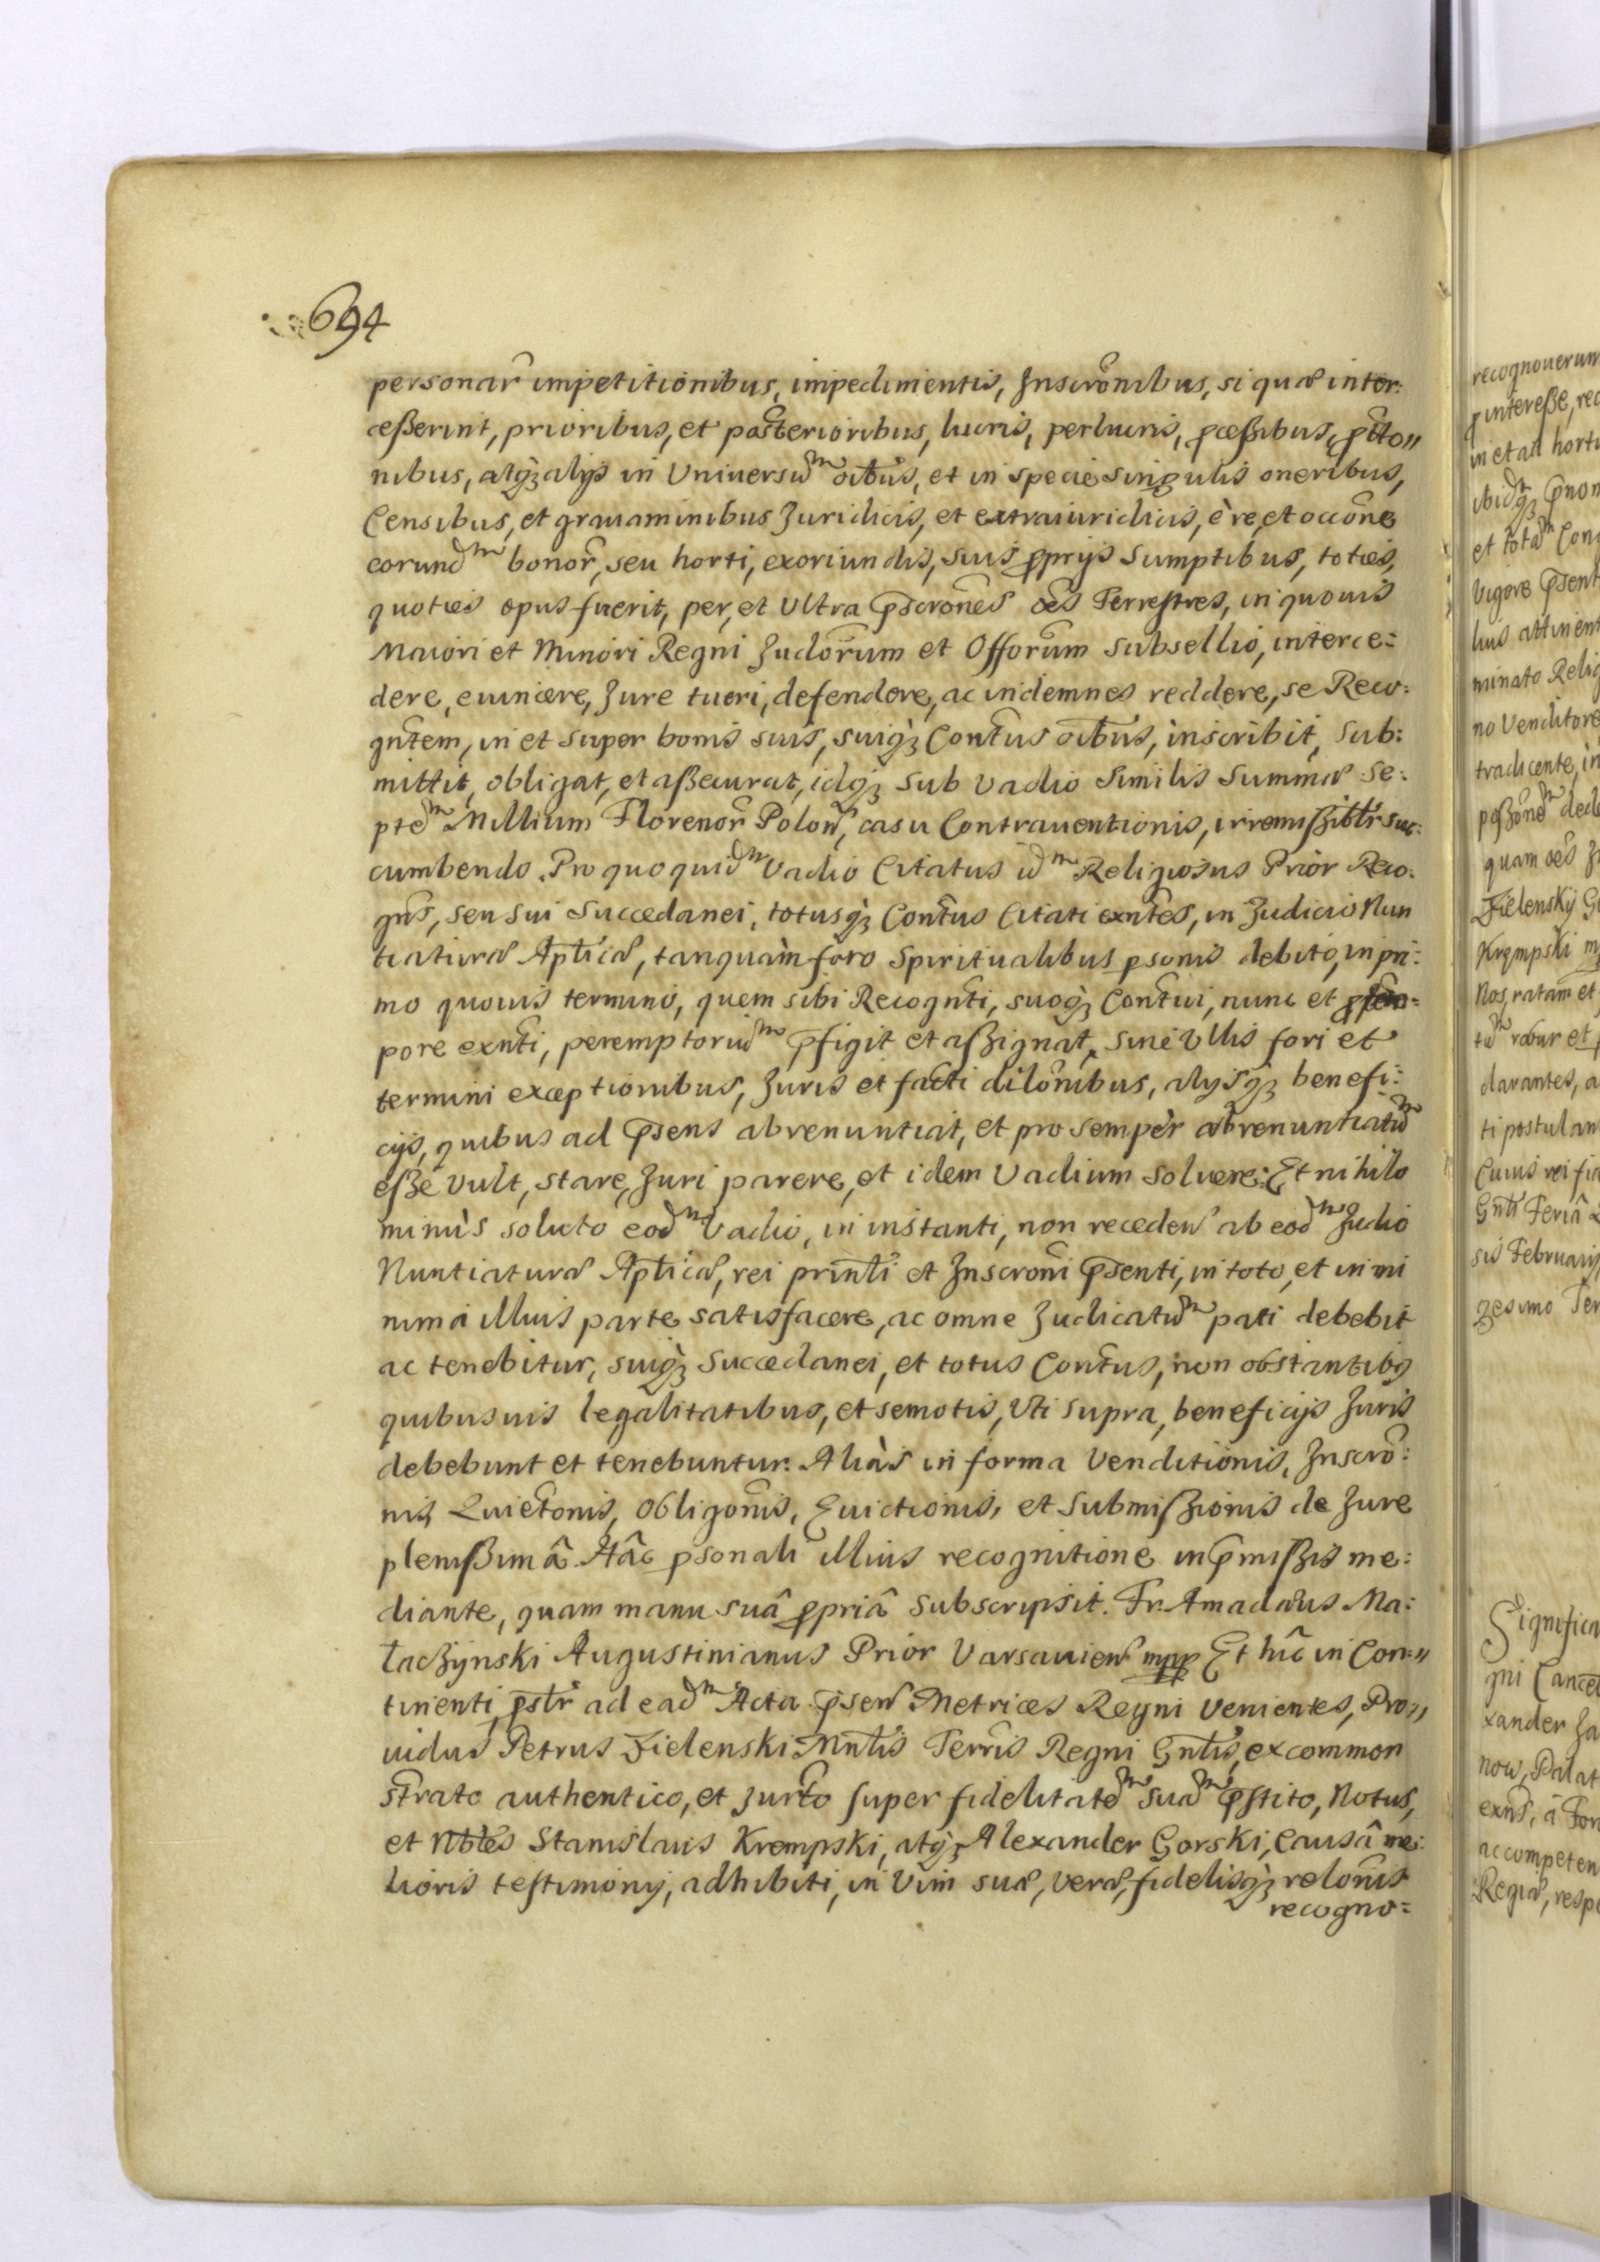 694
personar impetitionibus, impedimentis, Inscronibus, si quæ inter:
ceßerint, prioribus, et posterioribus, lucris, perlucris, pceßibus, ptto〃
nibus, atqȝ alijs in Universum oibus, et in specie singulis oneribus,
Censibus, et grauaminibus Juridicis, et extraiuridicis, è re, et occone
eorundm bonor, seu horti, exoriundis, suis pprijs sumptibus, toties,
quoties opus fuerit, per, et Ultra pscrones oes Terrestres, in quouis
Maiori et Minori Regni Judiorum et Offorum subsellio, interce:
dere, euincere, Jure tueri, defendere, ac indemnes reddere, se Reco:
gntem, in et super bonis suis, suiqȝ Contus oibus, inscribit, sub:
mittit, obligat, et aßecurat, idqȝ sub vadio similis summæ se:
ptem Millium Florenor Polon, casu Contrauentionis, irremißibtr suc:
cumbendo. Pro quo quidm Vadio Citatus idm Religiosus Prior Reco:
gns, seu sui Succedanei, totusqȝ Contus Citati exntes, in Judicio Nun
tiaturæ Aplicæ, tanquàm foro Spiritualibus psonis debito, in pri:
mo quouis termino, quem sibi Recognti, suoqȝ Contui, nunc et p tem:
pore exnti, peremptorium pfigit et aßignat, sine Ullis fori et
termini exceptionibus, Juris et facti dilonibus, alijsqȝ benefi:
cijs, quibus ad psens abrenuntiat, et pro semper abrenuntiatum
eße Vult, stare, Juri parere, et idem Vadium soluere: Et nihilo
minùs soluto eodm Vadio, in instanti, non receden ab eodm Judio
Nuntiaturæ Aplicæ, rei printi et Inscroni psenti, in toto, et in mi
nima illius parte satisfacere, ac omne Judicatum pati debebit
ac tenebitur, suiqȝ Succedanei, et totus Contus, non obstantibq
quibusuis legalitatibus, et semotis, Uti supra, beneficijs Juris
debebunt et tenebuntur. Aliàs in forma Venditionis, Inscro:
nis Quietonis, Obligonis, Euictionis, et submißionis de Jure
plenißimâ. Hâc psonali illius recognitione in pmißis me:
diante, quam manu suâ ppriâ subscripsit. Fr. Amadæus Ma:
łaczynski Augustinianus Prior Varsavien mpp Et hîc in Con:〃
tinenti, pstr ad eadm Acta psen Metrices Regni Venientes, Pro〃
uidus Petrus Zielenski Mntis Terris Regni Gntis, ex common
strato authentico, et Jurto super fidelitatem suam pstito, Notus,
et Nbles Stanislaus Krempski, atqȝ Alexander Gorski, Causâ me:
lioris testimonij, adhibiti, in Vim suæ, veræ, fidelisqȝ relonis
recogno=